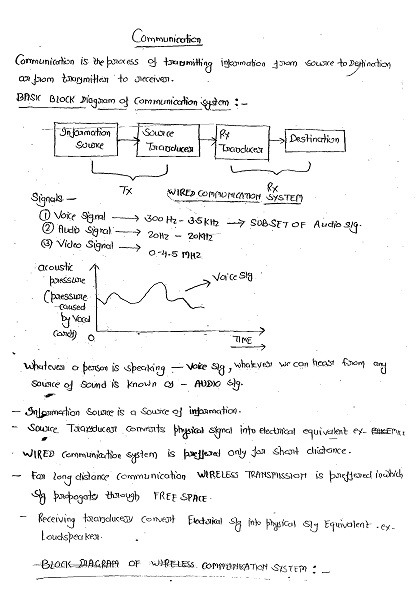 Communication
Communication is the process of transmitting information from source to Destination
or from transmitter to receiver.
BASIC BLOCK Diagram of Communication system :-
Information Source
Source Transducer
Rx Transducer
Destination
Tx
Rx
WIRED COMMUNICATION SYSTEM
Signals —
① Voice Signal → 300 Hz - 3.5 KHz → SUBSET OF Audio sig.
② Audio Signal → 20Hz - 20KHz
③ Video Signal → 0-4.5 MHz
acoustic
pressure
(pressure
caused
by Vocal
cords)
Voice sig
0
TIME
Whatever a person is speaking — Voice sig, whatever we can hear from any
source of sound is known as - AUDIO sig.
- Information Source is a source of information.
- Source Transducer converts physical signal into electrical equivalent ex-
- WIRED communication system is preffered only for short distance.
- For long distance communication WIRELESS TRANSMISSION is preffered in which
sig propagates through FREE SPACE.
- Receiving transducers convert Electrical sig into physical sig Equivalent. ex-
Loudspeaker.
- BLOCK DIAGRAM OF WIRELESS COMMUNICATION SYSTEM :-